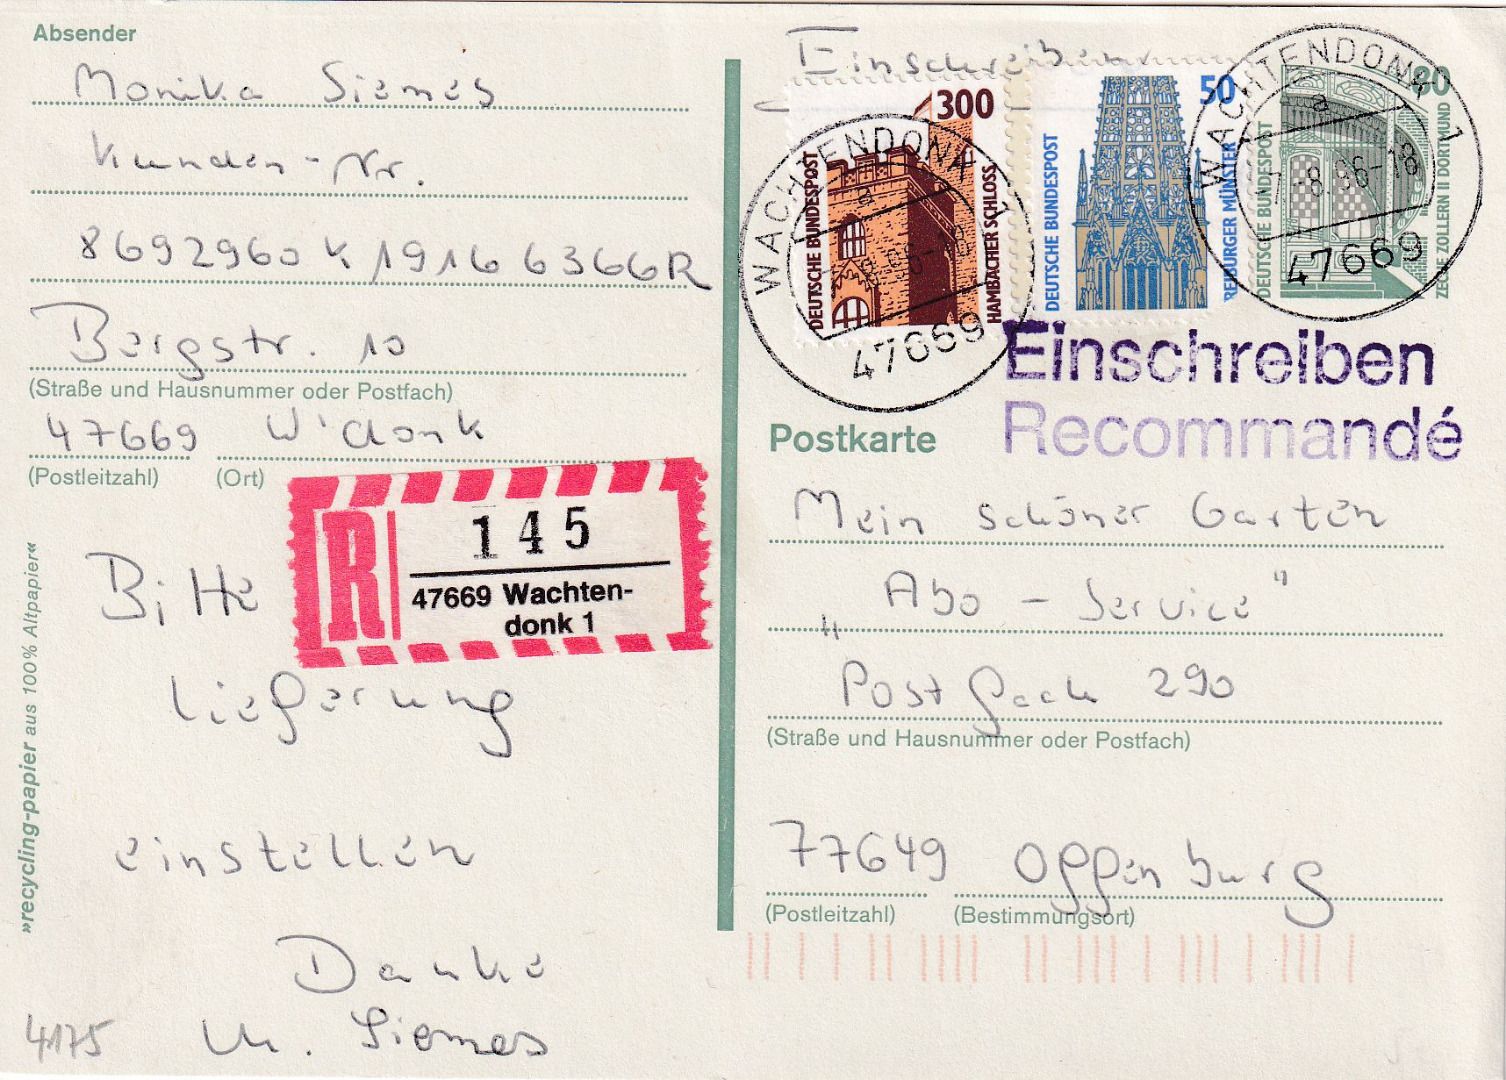 Absender
Monika Siemes
Kunden-Nr.
8692960 K 1916 6366R
Bergstr. 10
(Straße und Hausnummer oder Postfach)
47669 W'donk
(Postleitzahl) (Ort)
R 145
47669 Wachten-
donk 1
Bitte
Lieferung
einstellen
Danke
M. Siemes
4175
»recycling-papier aus 100% Altpapier«
Einschreiben
300
DEUTSCHE BUNDESPOST
HAMBACHER SCHLOSS
50
DEUTSCHE BUNDESPOST
FREIBURGER MÜNSTER
80
DEUTSCHE BUNDESPOST
ZECHE ZOLLERN II DORTMUND
WACHTENDONK 1
a
-8.96-18
47669
WACHTENDONK 1
a
-8.96-18
47669
Einschreiben
Recommandé
Postkarte
Mein schöner Garten
„Abo - Service"
Postfach 290
(Straße und Hausnummer oder Postfach)
77649 Offenburg
(Postleitzahl) (Bestimmungsort)